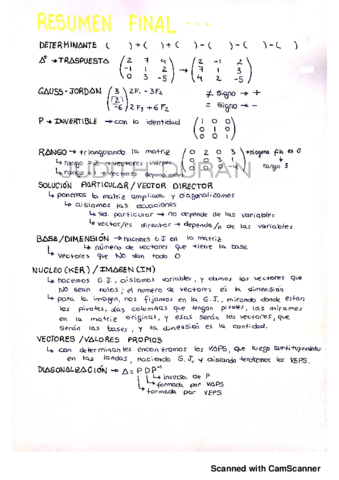 RESUMEN FINAL ...
DETERMINANTE ( )+( )+( )-( )-( )-( )
A^t → TRASPUESTA (2 7 4 / -1 1 2 / 0 3 -5) → (2 -1 2 / 7 1 3 / 4 2 -5)
GAUSS-JORDAN (3 / 2 / -6) 2F1 - 3F2 ≠ signo → +
2F3 + 6F2 = signo → -
P → INVERTIBLE → con la identidad (1 0 0 / 0 1 0 / 0 0 1)
RANGO → triangulando la matriz (0 2 0 3 / 0 0 3 1 / 0 0 -4) → ninguna fila es 0
↳ rango → vectores indep. rango 3
↳ rango → vectores dependientes
SOLUCIÓN PARTICULAR / VECTOR DIRECTOR
↳ ponemos la matriz ampliada y diagonalizamos
↳ aislamos las ecuaciones
↳ sol. particular → no depende de las variables
↳ vector/es director → depende/n de las variables
BASE/DIMENSIÓN → hacemos G.J en la matriz
↳ número de vectores que tiene la base
↳ vectores que NO dan todo 0
NUCLEO (KER) / IMAGEN (IM)
↳ hacemos G.J, aislamos variables, y damos los vectores que
NO sean nulos; el numero de vectores es la dimensión
↳ para la imagen, nos fijamos en la G.J, mirando donde estan
los pivotes, las columnas que tengan pivotes, las miramos
en la matriz original, y esas serán los vectores, que
serán las bases, y la dimensión es la cantidad.
VECTORES / VALORES PROPIOS
↳ con determinantes encontramos los VAPS, que luego sustituyendolos
en las landas, haciendo G.J, y aislando tendremos los VEPS.
DIAGONALIZACIÓN → A = P D P^-1
↳ inversa de P
↳ formada por VAPS
↳ formada por VEPS
Scanned with CamScanner